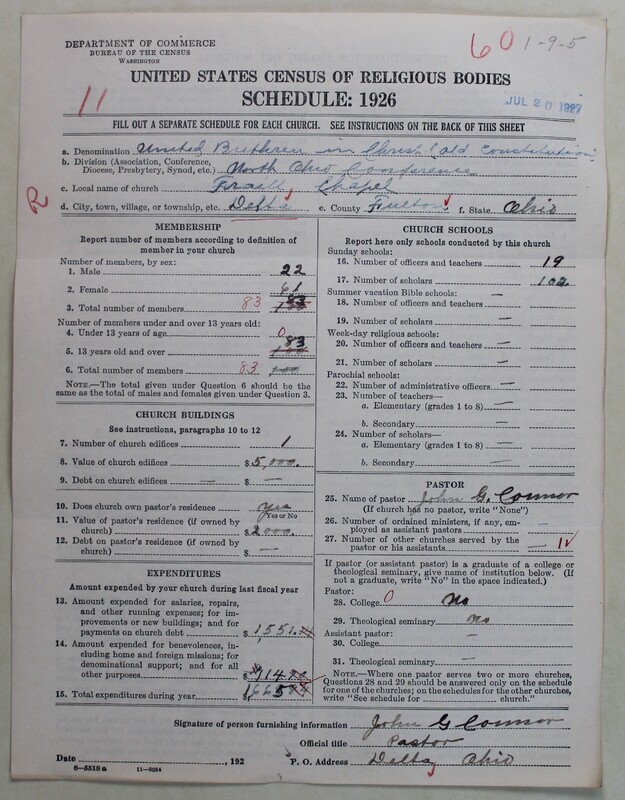 DEPARTMENT OF COMMERCE
BUREAU OF THE CENSUS
WASHINGTON
60 1-9-5
UNITED STATES CENSUS OF RELIGIOUS BODIES
11
SCHEDULE: 1926
JUL 20 1927
FILL OUT A SEPARATE SCHEDULE FOR EACH CHURCH. SEE INSTRUCTIONS ON THE BACK OF THIS SHEET
a. Denomination United Brethren in Christ (old Constitution
b. Division (Association, Conference, Diocese, Presbytery, Synod, etc.) North Ohio Conference
c. Local name of church Chapel
R
d. City, town, village, or township, etc. Delta e. County Fulton f. State Ohio
MEMBERSHIP
Report number of members according to definition of member in your church
Number of members, by sex:
1. Male 22
2. Female 61
3. Total number of members 83 83
Number of members under and over 13 years old:
4. Under 13 years of age 0
5. 13 years old and over 83
6. Total number of members 83
NOTE.—The total given under Question 6 should be
same as the total of males and females given under Question 3.
CHURCH BUILDINGS
See instructions, paragraphs 10 to 12
7. Number of church edifices 1
8. Value of church edifices $5,000.
9. Debt on church edifices — $ —
10. Does church own pastor's residence yes
Yes or No
11. Value of pastor's residence (if owned by
church) $2000.
12. Debt on pastor's residence (if owned by
church) $ —
EXPENDITURES
Amount expended by your church during last fiscal year
13. Amount expended for salaries, repairs,
and other running expenses; for im-
provements or new buildings; and for
payments on church debt $1,551.
14. Amount expended for benevolences, in-
cluding home and foreign missions; for
denominational support; and for all
other purposes $ 114
15. Total expenditures during year $ 1665
CHURCH SCHOOLS
Report here only schools conducted by this church
Sunday schools:
16. Number of officers and teachers 19
17. Number of scholars 102
Summer vacation Bible schools: —
18. Number of officers and teachers
19. Number of scholars —
Week-day religious schools:
20. Number of officers and teachers —
21. Number of scholars —
Parochial schools:
22. Number of administrative officers —
23. Number of teachers—
a. Elementary (grades 1 to 8) —
b. Secondary —
24. Number of scholars—
a. Elementary (grades 1 to 8) —
b. Secondary —
PASTOR
25. Name of pastor John G. Connor
(If church has no pastor, write "None")
26. Number of ordained ministers, if any, em-
ployed as assistant pastors —
27. Number of other churches served by the
pastor or his assistants — 1
If pastor (or assistant pastor) is a graduate of a college or
theological seminary, give name of institution below. (If
not a graduate, write "No" in the space indicated.)
Pastor:
28. College 0 No
29. Theological seminary no
Assistant pastor: —
30. College
31. Theological seminary —
NOTE.—Where one pastor serves two or more churches,
Questions 28 and 29 should be answered only on the schedule
for one of the churches; on the schedules for the other churches,
write "See schedule for church."
Signature of person furnishing information John G Connor
Official title Pastor
Date , 192 P. O. Address Delta, Ohio
8—5518 a 11—9054